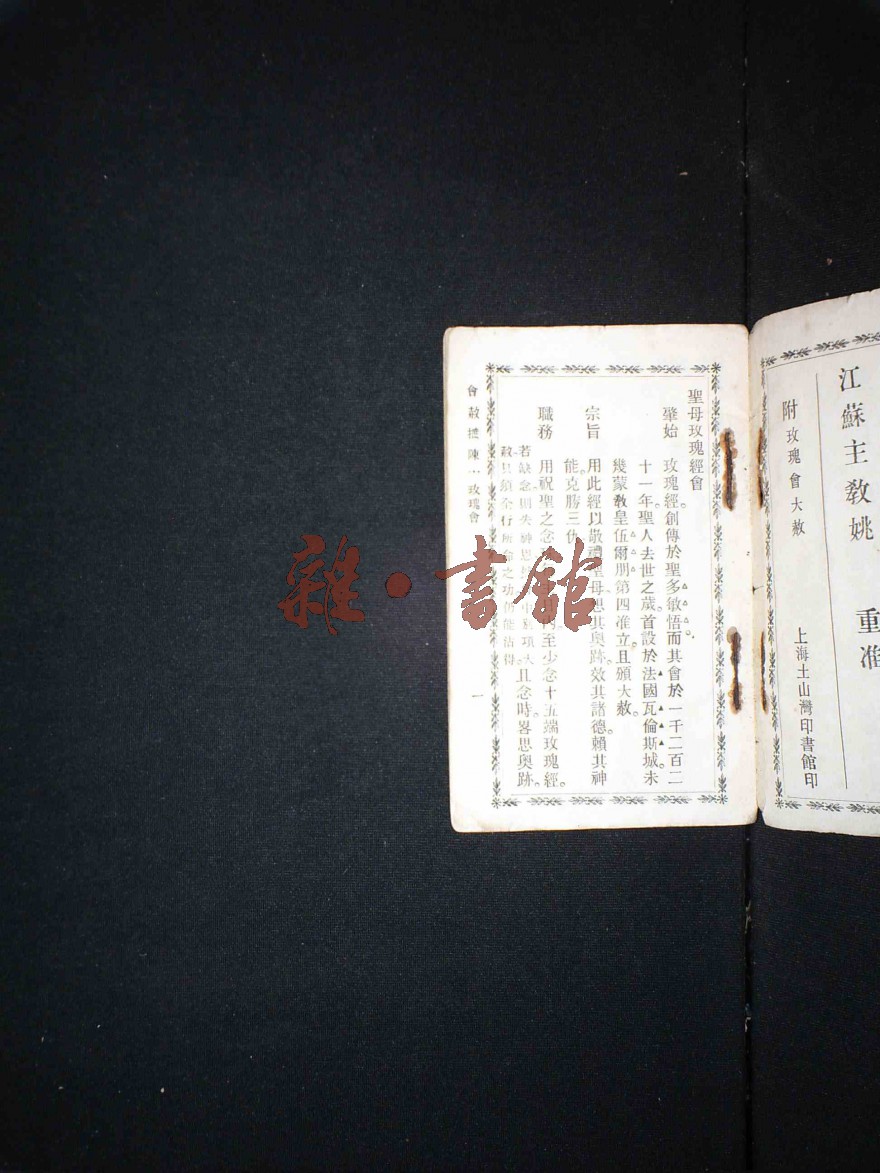 江蘇主教姚 重准
附玫瑰會大赦
上海土山灣印書館印
聖母玫瑰經會
肇始 玫瑰經。創傳於聖多敏悟。而其會於一千二百二
十一年。聖人去世之歲。首設於法國瓦倫斯城。未
幾蒙教皇伍爾朋第四准立。且頒大赦。
宗旨 用此經以敬禮聖母。想其奧跡。效其諸德。賴其神
能。克勝三仇
職務 用祝聖之念 內至少念十五端玫瑰經。
若缺念則失神恩 項大 且念時。畧思奧跡。
赦只須全行所命之功 仍能沾得
會赦摭陳 玫瑰會 一
雜·書館